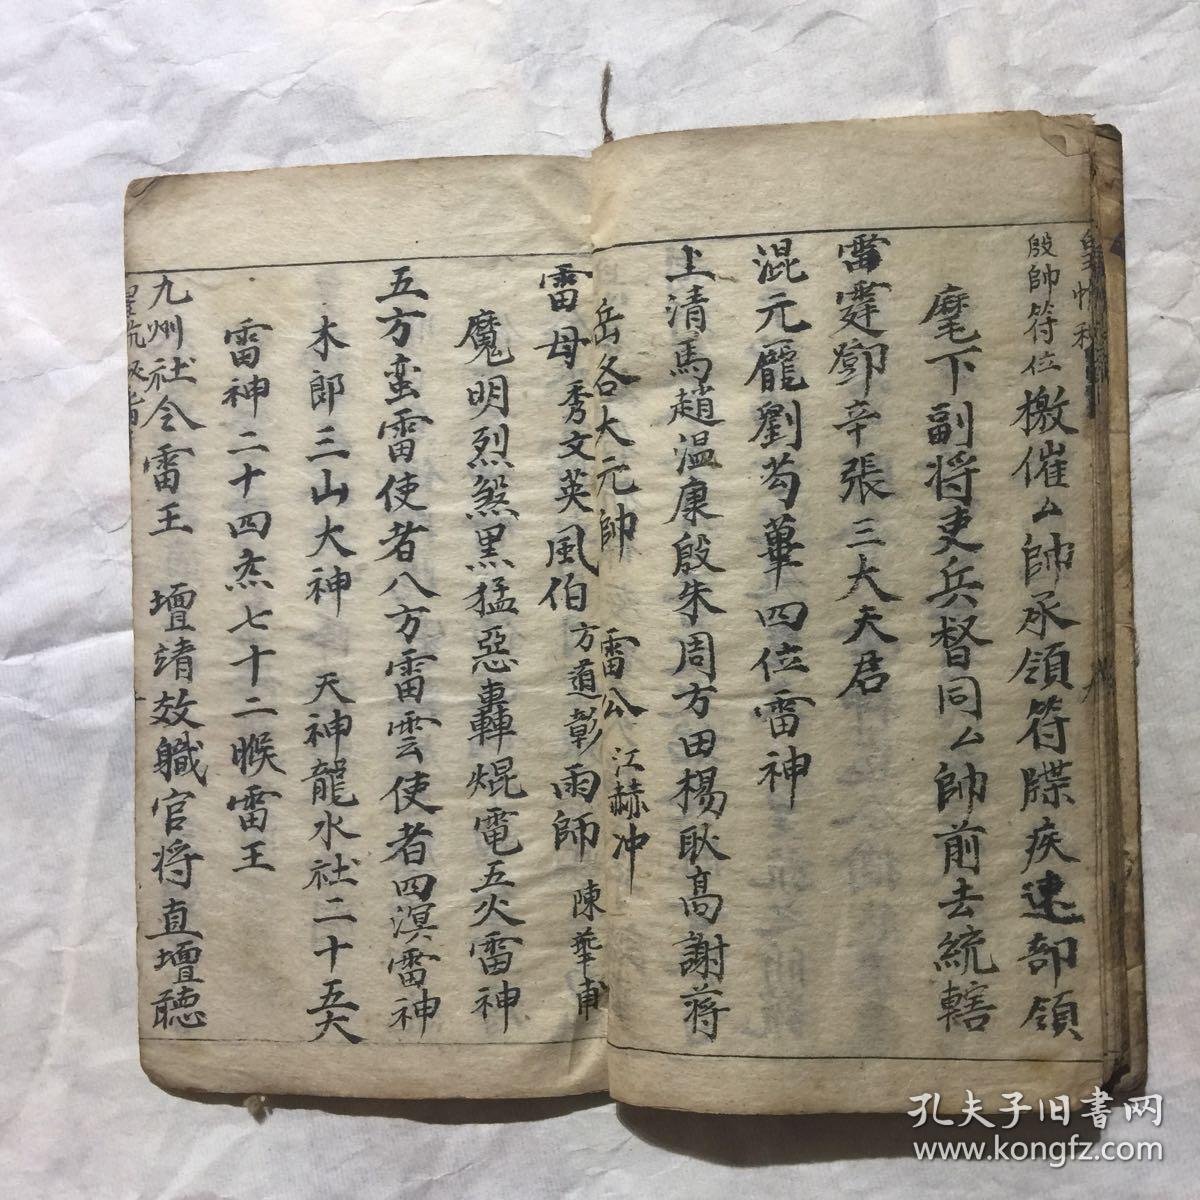 殷帥符位檄催厶帥承領符牒疾速部領
麾下副将吏兵督同厶帥前去統轄
雷霆鄧辛張三大天君
混元龐劉苟畢四位雷神
上清馬趙温康殷朱周方田楊耿高謝蒋
岳各大元帥 雷公江赫冲
雷母秀文英風伯方道彰雨師陳華甫
魔明烈煞黒猛惡轟焜電五火雷神
五方蛮雷使者八方雷雲使者四溟雷神
木郎三山大神 天神龍水社二十五大
雷神二十四炁七十二𠋫雷王
九州社令雷王 壇靖效職官将直壇聴
孔夫子旧書网
www.kongfz.com